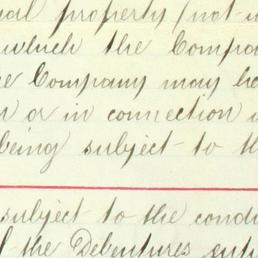 al property (not
which the Compa
e Company may ha
or in connection
being subject to th
subject to the condi
f the Debentures enti